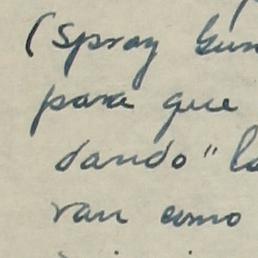 (Spray Gun
para que
dando" la
van como